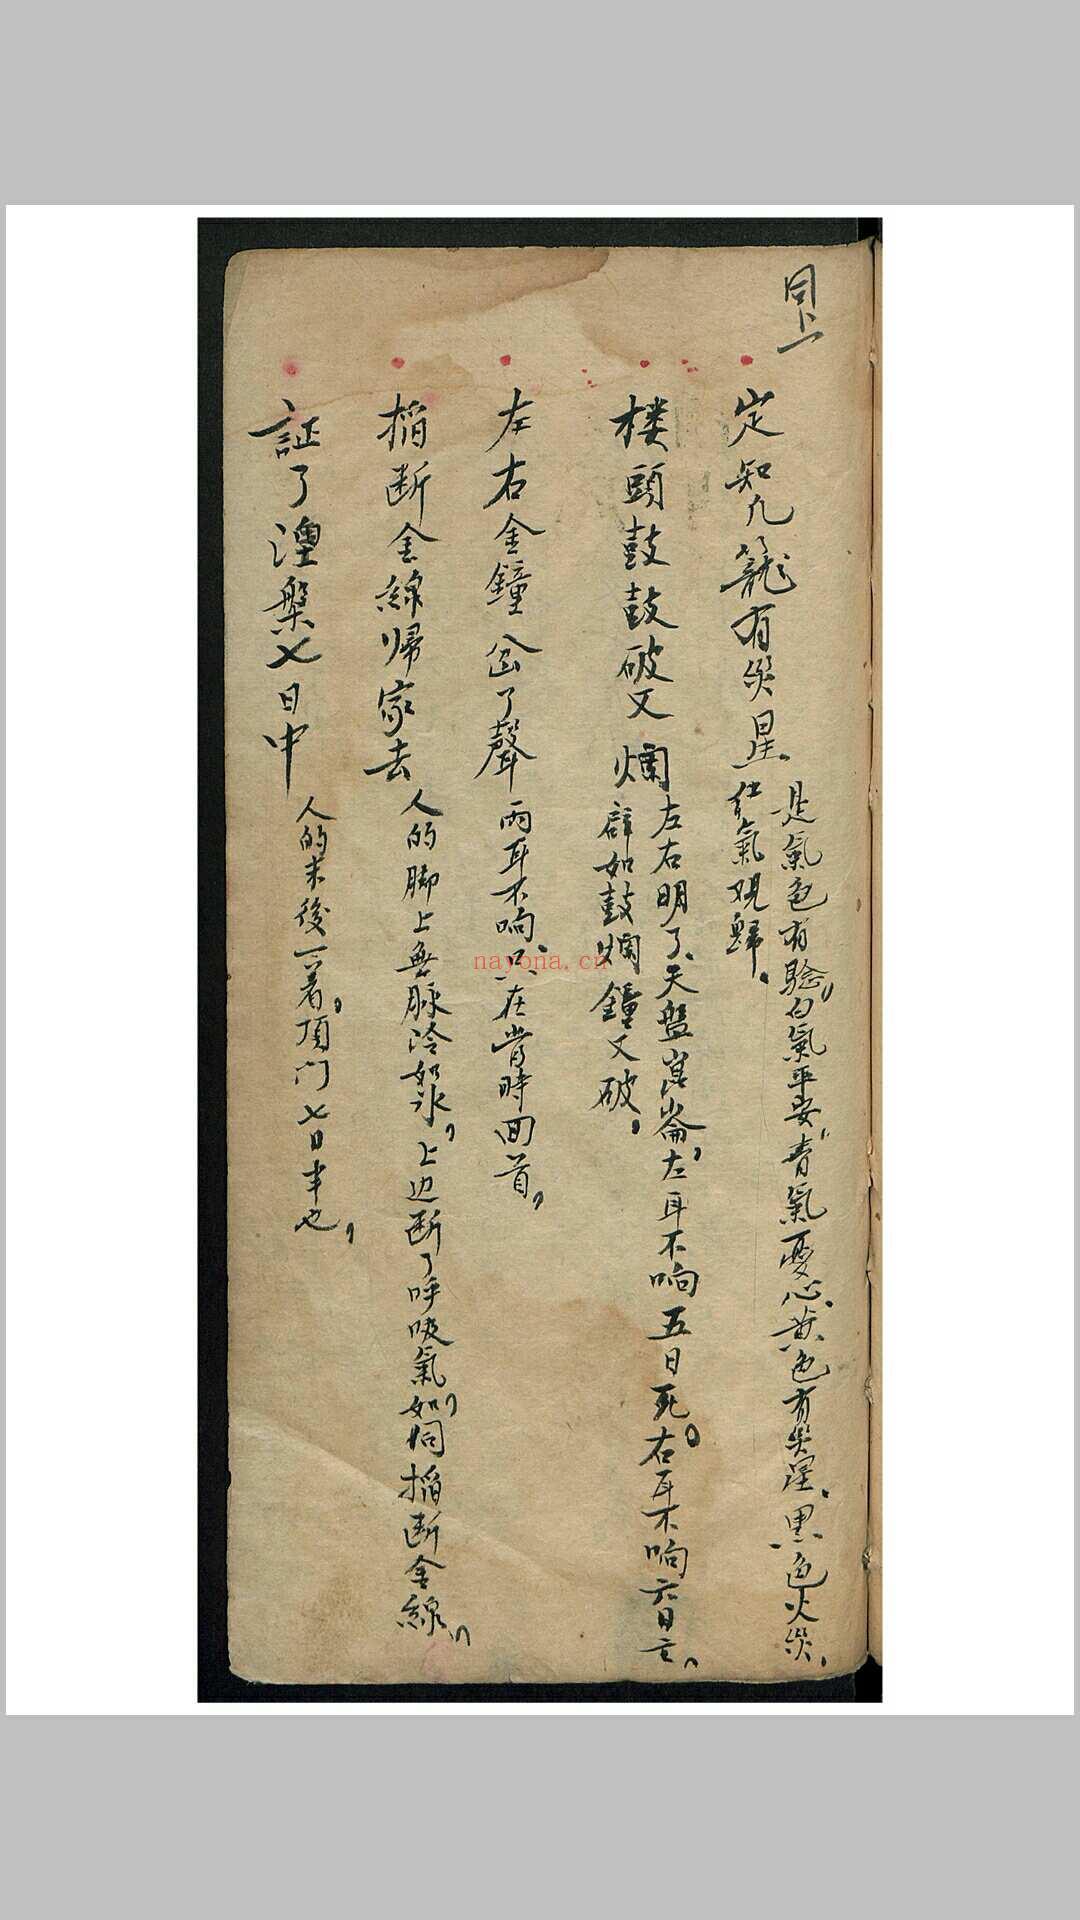 同上
定知九籠有災星
是氣色有驗白氣平安青氣憂心黃色有災星黑色火災
紅氣
樓頭鼓鼓破又爛
左右明了天盤崑崙左耳不响五日死右耳不响六日亡
辟如鼓爛鐘又破
左右金鐘岔了聲
兩耳不响只在當時囬首
掐断金線帰家去
人的脚上無脉冷如氷上边断了呼吸氣如同掐断金線
証了涅槃七日中
人的末後一着頂門七日半也
nayona.cn